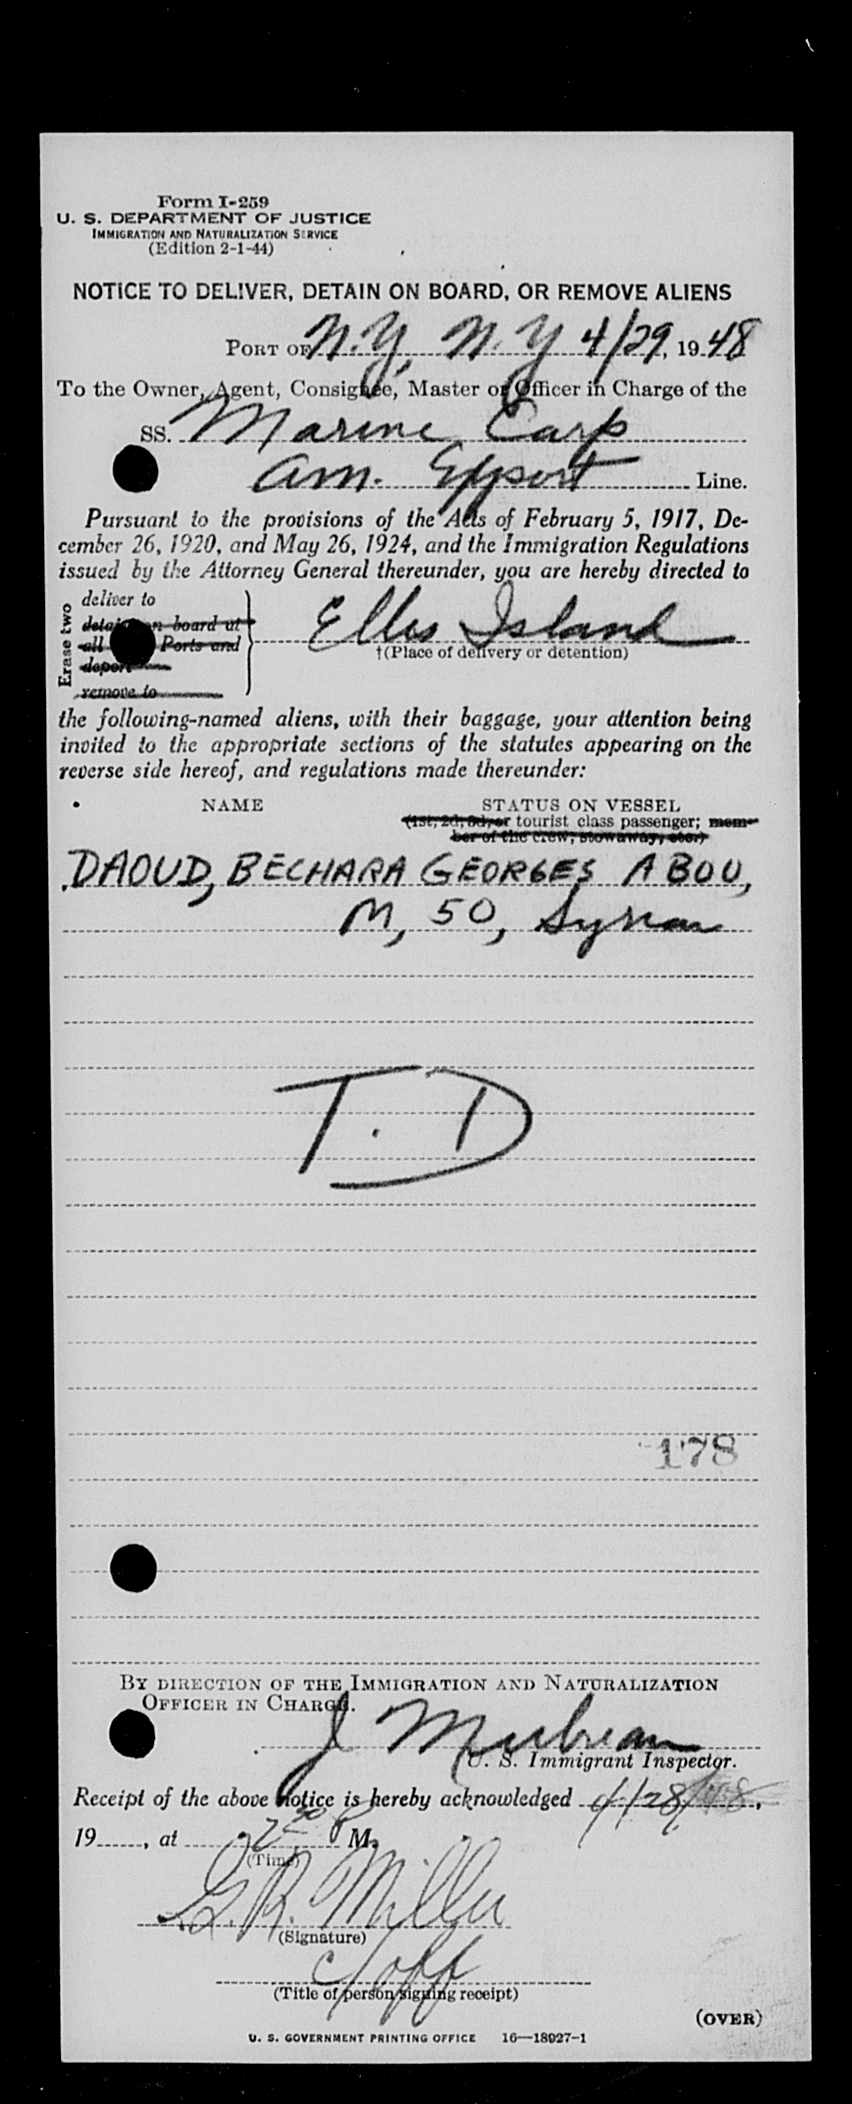 Form I-259
U. S. DEPARTMENT OF JUSTICE
IMMIGRATION AND NATURALIZATION SERVICE
(Edition 2-1-44)
NOTICE TO DELIVER, DETAIN ON BOARD, OR REMOVE ALIENS
PORT OF N.Y, N.Y 4/29, 1948
To the Owner, Agent, Consignee, Master or Officer in Charge of the
SS. Marine Carp
Am. Export Line.
Pursuant to the provisions of the Acts of February 5, 1917, De-
cember 26, 1920, and May 26, 1924, and the Immigration Regulations
issued by the Attorney General thereunder, you are hereby directed to
Erase two
deliver to
detain on board at
all Ports and
deport
remove to
Ellis Island
†(Place of delivery or detention)
the following-named aliens, with their baggage, your attention being
invited to the appropriate sections of the statutes appearing on the
reverse side hereof, and regulations made thereunder:
NAME STATUS ON VESSEL
(1st, 2d, 3d, or tourist class passenger; mem-
ber of the crew, stowaway, etc.)
DAOUD, BECHARA GEORGES ABOU,
M, 50, Syrian
T. D
178
BY DIRECTION OF THE IMMIGRATION AND NATURALIZATION
OFFICER IN CHARGE.
J
U. S. Immigrant Inspector.
Receipt of the above notice is hereby acknowledged 4/28/48,
19, at 2 P M.
(Time)
G.R. Miller
(Signature)
C/off
(Title of person signing receipt)
(OVER)
U. S. GOVERNMENT PRINTING OFFICE 16—18927-1